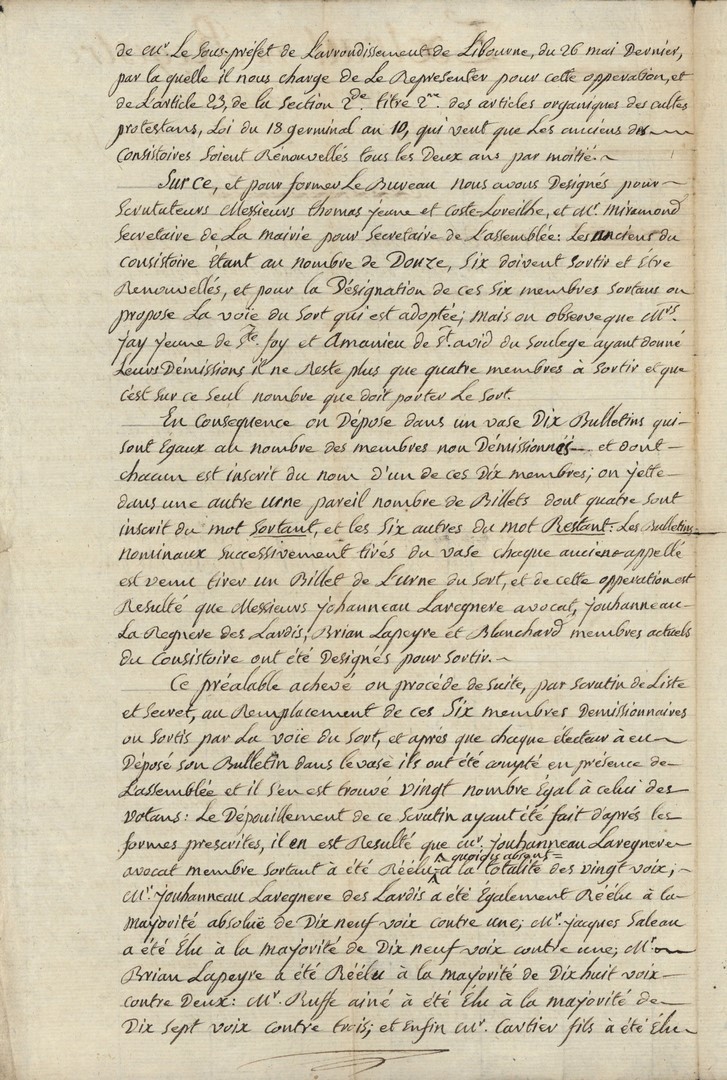 de Mr. Le Sous-préfet de Larrondissement de Libourne, du 26 mai Dernier,
par la quelle il nous charge de Le Representer pour cette opperation, et
de L'article 23, de la section 2de. titre 2me. des articles organiques des cultes
protestans, Loi du 18 germinal an 10, qui veut que Les anciens des
Consistoires Soient Rénouvellés tous les Deux ans par moitié.
Sur ce, et pour former Le Bureau nous avons Désignés pour
Scrutateurs Messieurs thomas jeune et coste-Loreilhe, et Mr. miramond
Secretaire de La mairie pour Secretaire de L'assemblée: Les anciens du
Consistoire Etant au nombre de Douze, Six doivent Sortir et Etre
Renouvellés, et pour la Désignation de ces Six membres Sortans on
propose La voie du Sort qui est adoptée; mais on observe que Mrs.
jay jeune de Ste. foy et Amanieu de St. avid du Soulege ayant donné
Leurs Démissions il ne Reste plus que quatre membres à Sortir et que
c'est sur ce Seul nombre que doit porter Le Sort.
En Consequence on Dépose dans un vase Dix Bulletins qui
sont Egaux au nombre des membres non Démissionnés et dont
chacun est inscrit du nom D'un de ces Dix membres; on jette
dans une autre urne pareil nombre de Billets dont quatre Sont
inscrit du mot Sortant, et les Six autres du mot Restant: Les Bulletins
nominaux successivement tirés du vase chaque ancien appellé
est venu tirer un Billet de L'urne du Sort, et de cette opperation est
Resulté que Messieurs johanneau Laregnere avocat, jouhanneau
La Regnere des Lardis, Brian Lapeyre et Blanchard membres actuels
du Consistoire ont été Designés pour Sortir.
Ce préalable achevé on procéde de Suite, par Scrutin de Liste
et Secret, au Remplacement de ces Six membres Demissionnaires
ou Sortis par La voie du Sort, et après que chaque électeur à eu
Déposé son Bulletin dans le vase ils ont été compté en présence de
L'assemblée et il s'en est trouvé vingt nombre Egal à celui des
votans: Le Dépouillement de ce Scrutin ayant été fait d'après les
formes prescrites, il en est Resulté que Mr. jouhanneau Laregnere
quoique absent
avocat membre sortant à été Réélu à la totalité des vingt voix;
Mr. jouhanneau Laregnere des Lardis a été Egalement Réélu à la
majorité absolue de Dix neuf voix contre une; Mr. jacques Galeau
a été Élu à la majorité de Dix neuf voix contre une; Mr.
Brian Lapeyre a été Réélu à la majorité de Dix huit voix
contre Deux: Mr. Ruffe ainé à été Élu à la majorité de
Dix Sept voix contre trois; et Enfin Mr. Cartier fils à été Élu